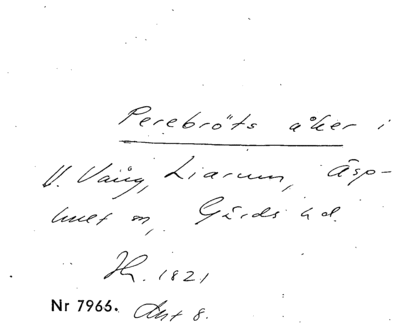 Perebröts åker i
V. Vång, Liarum, Äsp-
hult sn, Gärds hd.
Hh. 1821
Nr 7966. Akt 8.